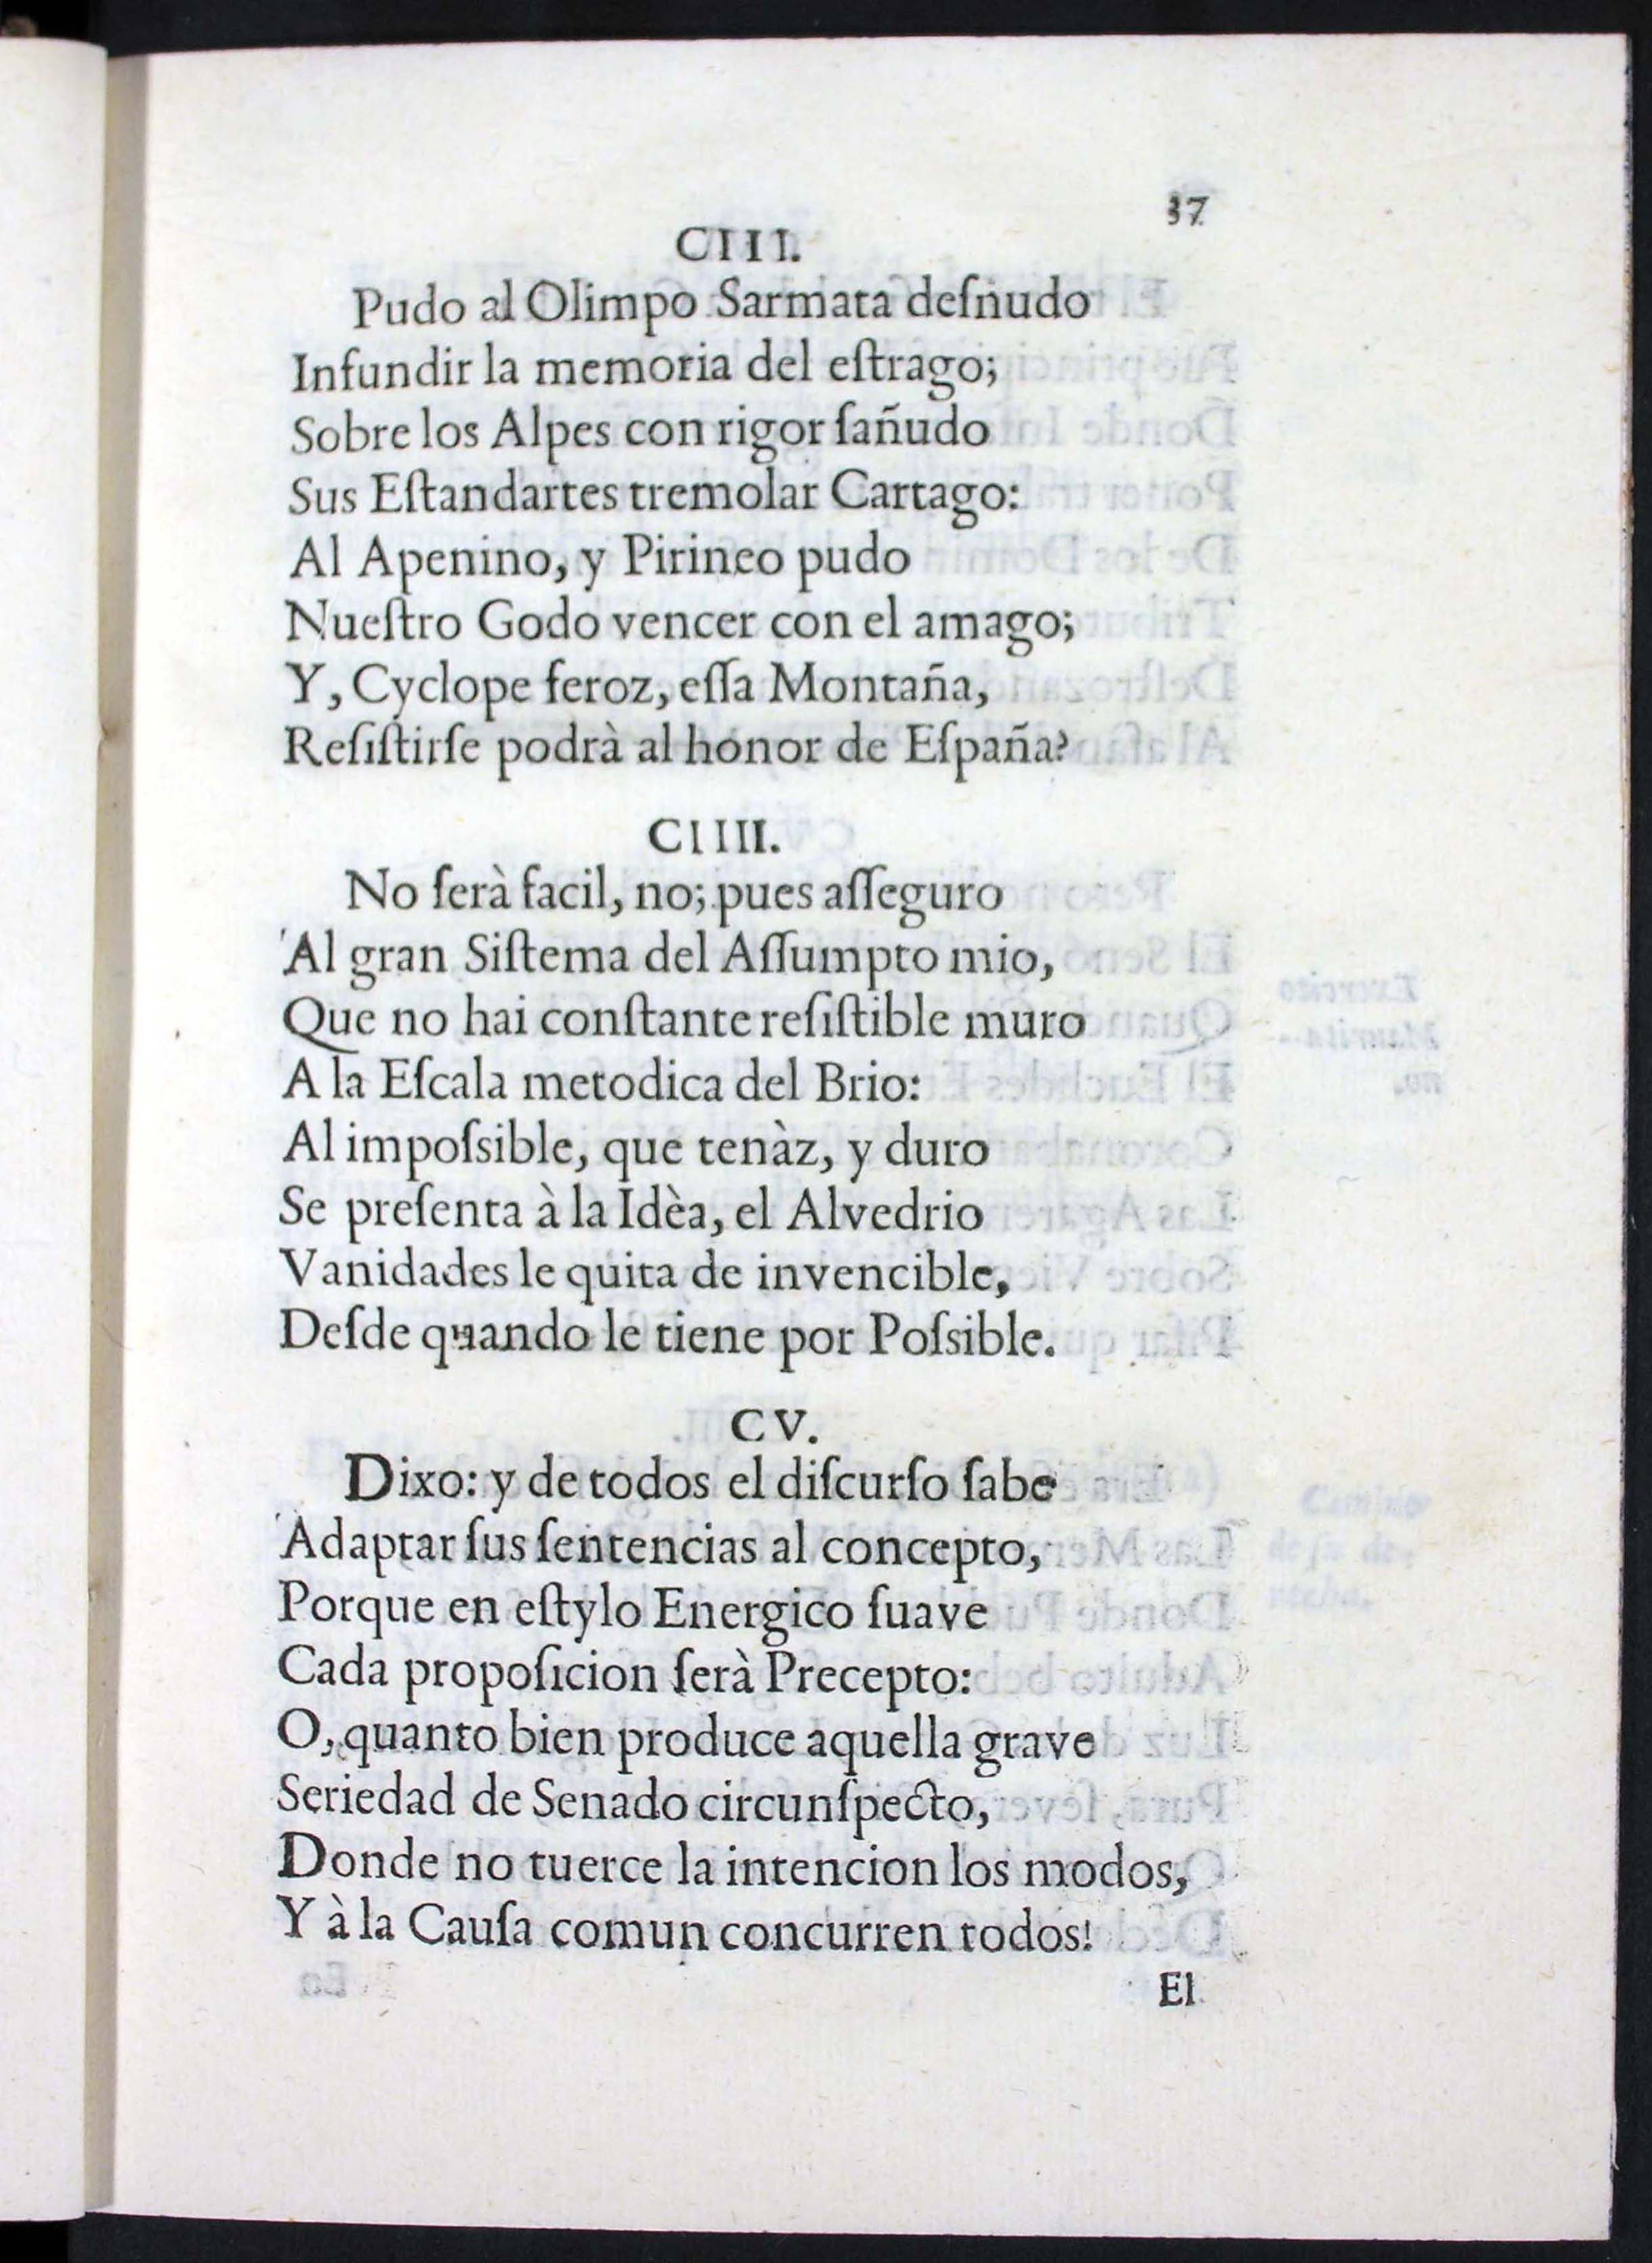 37
CIII.
Pudo al Olimpo Sarmata deſnudo
Infundir la memoria del eſtrago;
Sobre los Alpes con rigor ſañudo
Sus Eſtandartes tremolar Cartago:
Al Apenino, y Pirineo pudo
Nueſtro Godo vencer con el amago;
Y, Cyclope feroz, eſſa Montaña,
Reſiſtirſe podrà al honor de Eſpaña?
CIIII.
No ſerà facil, no; pues aſſeguro
Al gran Siſtema del Aſſumpto mio,
Que no hai conſtante reſiſtible muro
A la Eſcala metodica del Brio:
Al impoſsible, que tenàz, y duro
Se preſenta à la Idèa, el Alvedrio
Vanidades le quita de invencible,
Deſde quando le tiene por Poſsible.
CV.
Dixo: y de todos el diſcurſo ſabe
Adaptar ſus ſentencias al concepto,
Porque en eſtylo Energico ſuave
Cada propoſicion ſerà Precepto:
O, quanto bien produce aquella grave
Seriedad de Senado circunſpecto,
Donde no tuerce la intencion los modos,
Y à la Cauſa comun concurren todos!
El